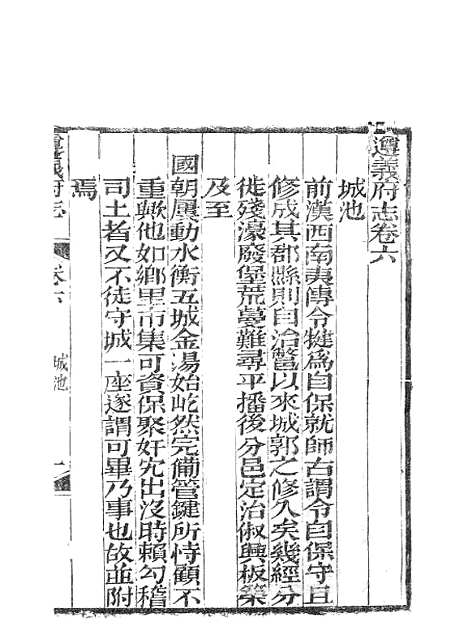 遵義府志卷六
城池
前漢西南夷傳令犍為自保就師古謂令自保守且
修成其郡縣則自治鄨以來城郭之修久矣幾經分
徙殘濠廢堡荒蔓難尋平播後分邑定治俶興板築
及至
國朝屢動水衡五城金湯始屹然完備管鍵所恃顧不
重歟他如鄉里市集可資保聚奸宄出沒時賴勾稽
司土者又不徒守城一座遂謂可畢乃事也故並附
焉
遵義府志
卷六
城池
一